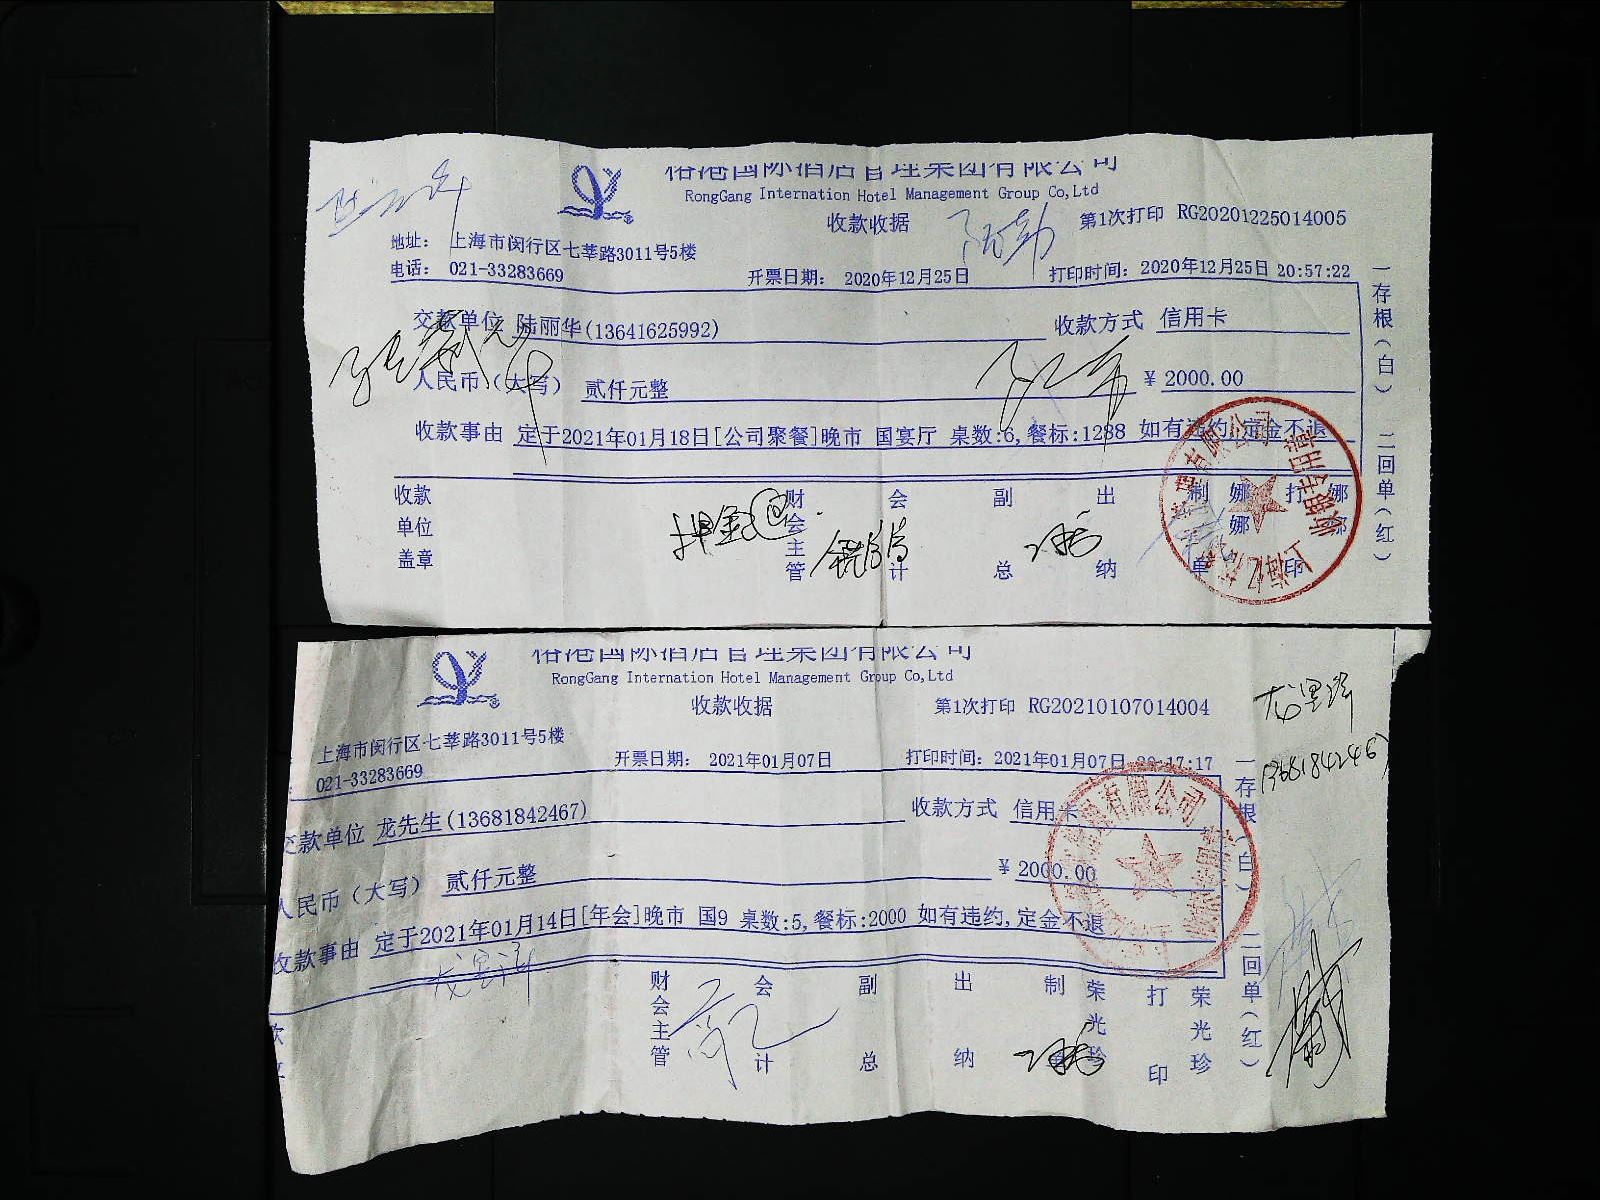 榕港国际酒店管理集团有限公司
RongGang Internation Hotel Management Group Co,Ltd
收款收据 第1次打印 RG20201225014005
地址： 上海市闵行区七莘路3011号5楼
电话： 021-33283669 开票日期： 2020年12月25日 打印时间：2020年12月25日 20:57:22
交款单位 陆丽华(13641625992) 收款方式 信用卡
人民币（大写） 贰仟元整 ￥ 2000.00
收款事由 定于2021年01月18日[公司聚餐]晚市 国宴厅 桌数:6,餐标:1288 如有违约,定金不退
收款单位盖章 财会主管 会计 副总 出纳 制单 娜娜 打印 娜娜
押金
一存根（白） 二回单（红）
榕港国际酒店管理集团有限公司
RongGang Internation Hotel Management Group Co,Ltd
收款收据 第1次打印 RG20210107014004
上海市闵行区七莘路3011号5楼
021-33283669 开票日期： 2021年01月07日 打印时间：2021年01月07日 :17:17
交款单位 龙先生(13681842467) 收款方式 信用卡
人民币（大写） 贰仟元整 ￥ 2000.00
收款事由 定于2021年01月14日[年会]晚市 国9 桌数:5,餐标:2000 如有违约,定金不退
财会主管 会计 副总 出纳 制 荣光珍 打印 荣光珍
一存根（白） 二回单（红）
1368184246